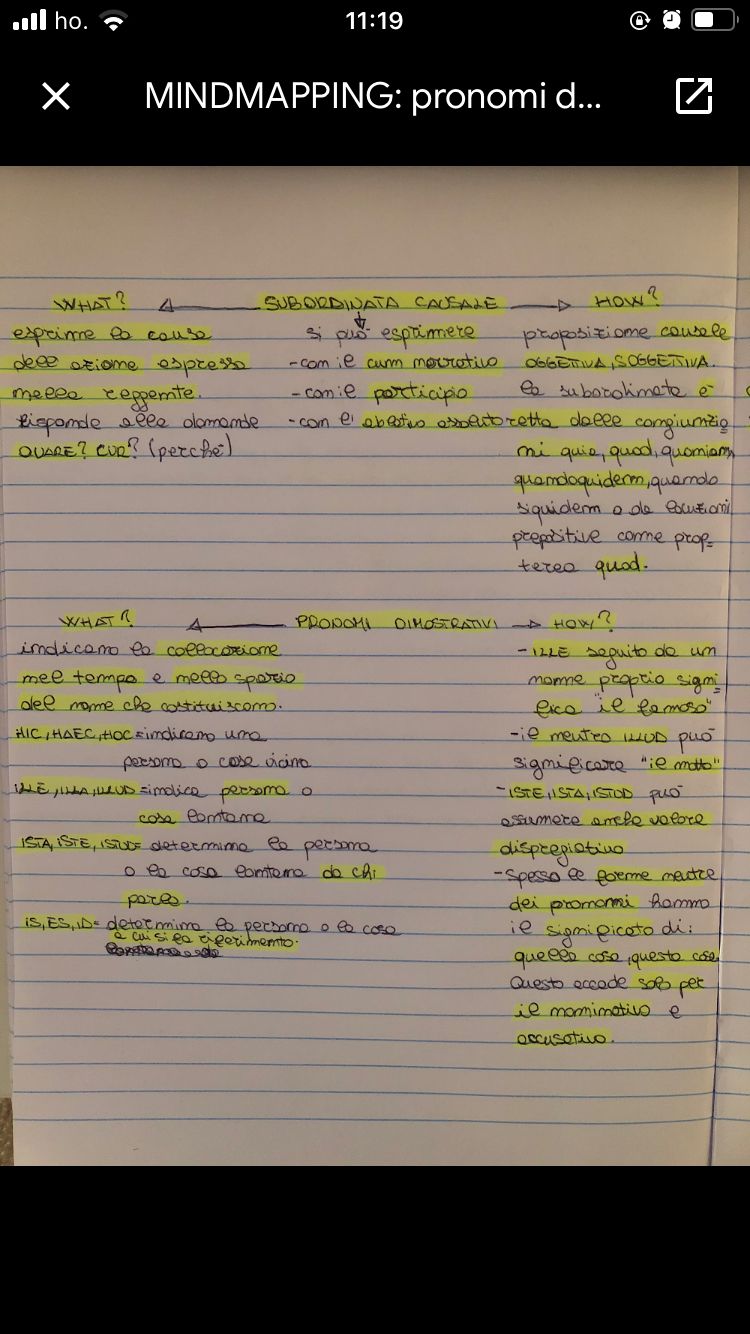 ho.
11:19
MINDMAPPING: pronomi d...
WHAT?
SUBORDINATA CAUSALE
HOW?
esprime la causa
dell azione espressa
nella reggente.
risponde alla domande
QUARE? CUR? (perché)
si può esprimere
-con il cum narrativo
-con il participio
-con l' ablativo assoluto
proposizione causale
OGGETTIVA, SOGGETTIVA.
la subordinata è
retta dalle congiunzio
ni quia, quod, quoniam,
quandoquiderm, quando
siquidem o da locuzioni
prepositive come prop=
terea quod.
WHAT?
PRONOMI DIMOSTRATIVI
HOW?
indicano la collocazione
nel tempo e nello spazio
del nome che costituiscono.
HIC, HAEC, HOC = indicano una
persona o cosa vicina
ILLE, ILLA, ILLUD = indica persona o
cosa lontana
ISTA, ISTE, ISTUD= determina la persona
o la cosa lontana da chi
parla.
IS, ES, ID= determina la persona o la cosa
a cui si fa riferimento.
-ILLE seguito da un
nome proprio signi
fica "il famoso"
-il neutro ILLUD può
significare "il motto"
-ISTE, ISTA, ISTUD può
assumere anche valore
dispregiativo
-Spesso le forme neutre
dei pronomi hanno
il significato di:
quella cosa, questa cosa
Questo accade solo per
il nominativo e
accusativo.